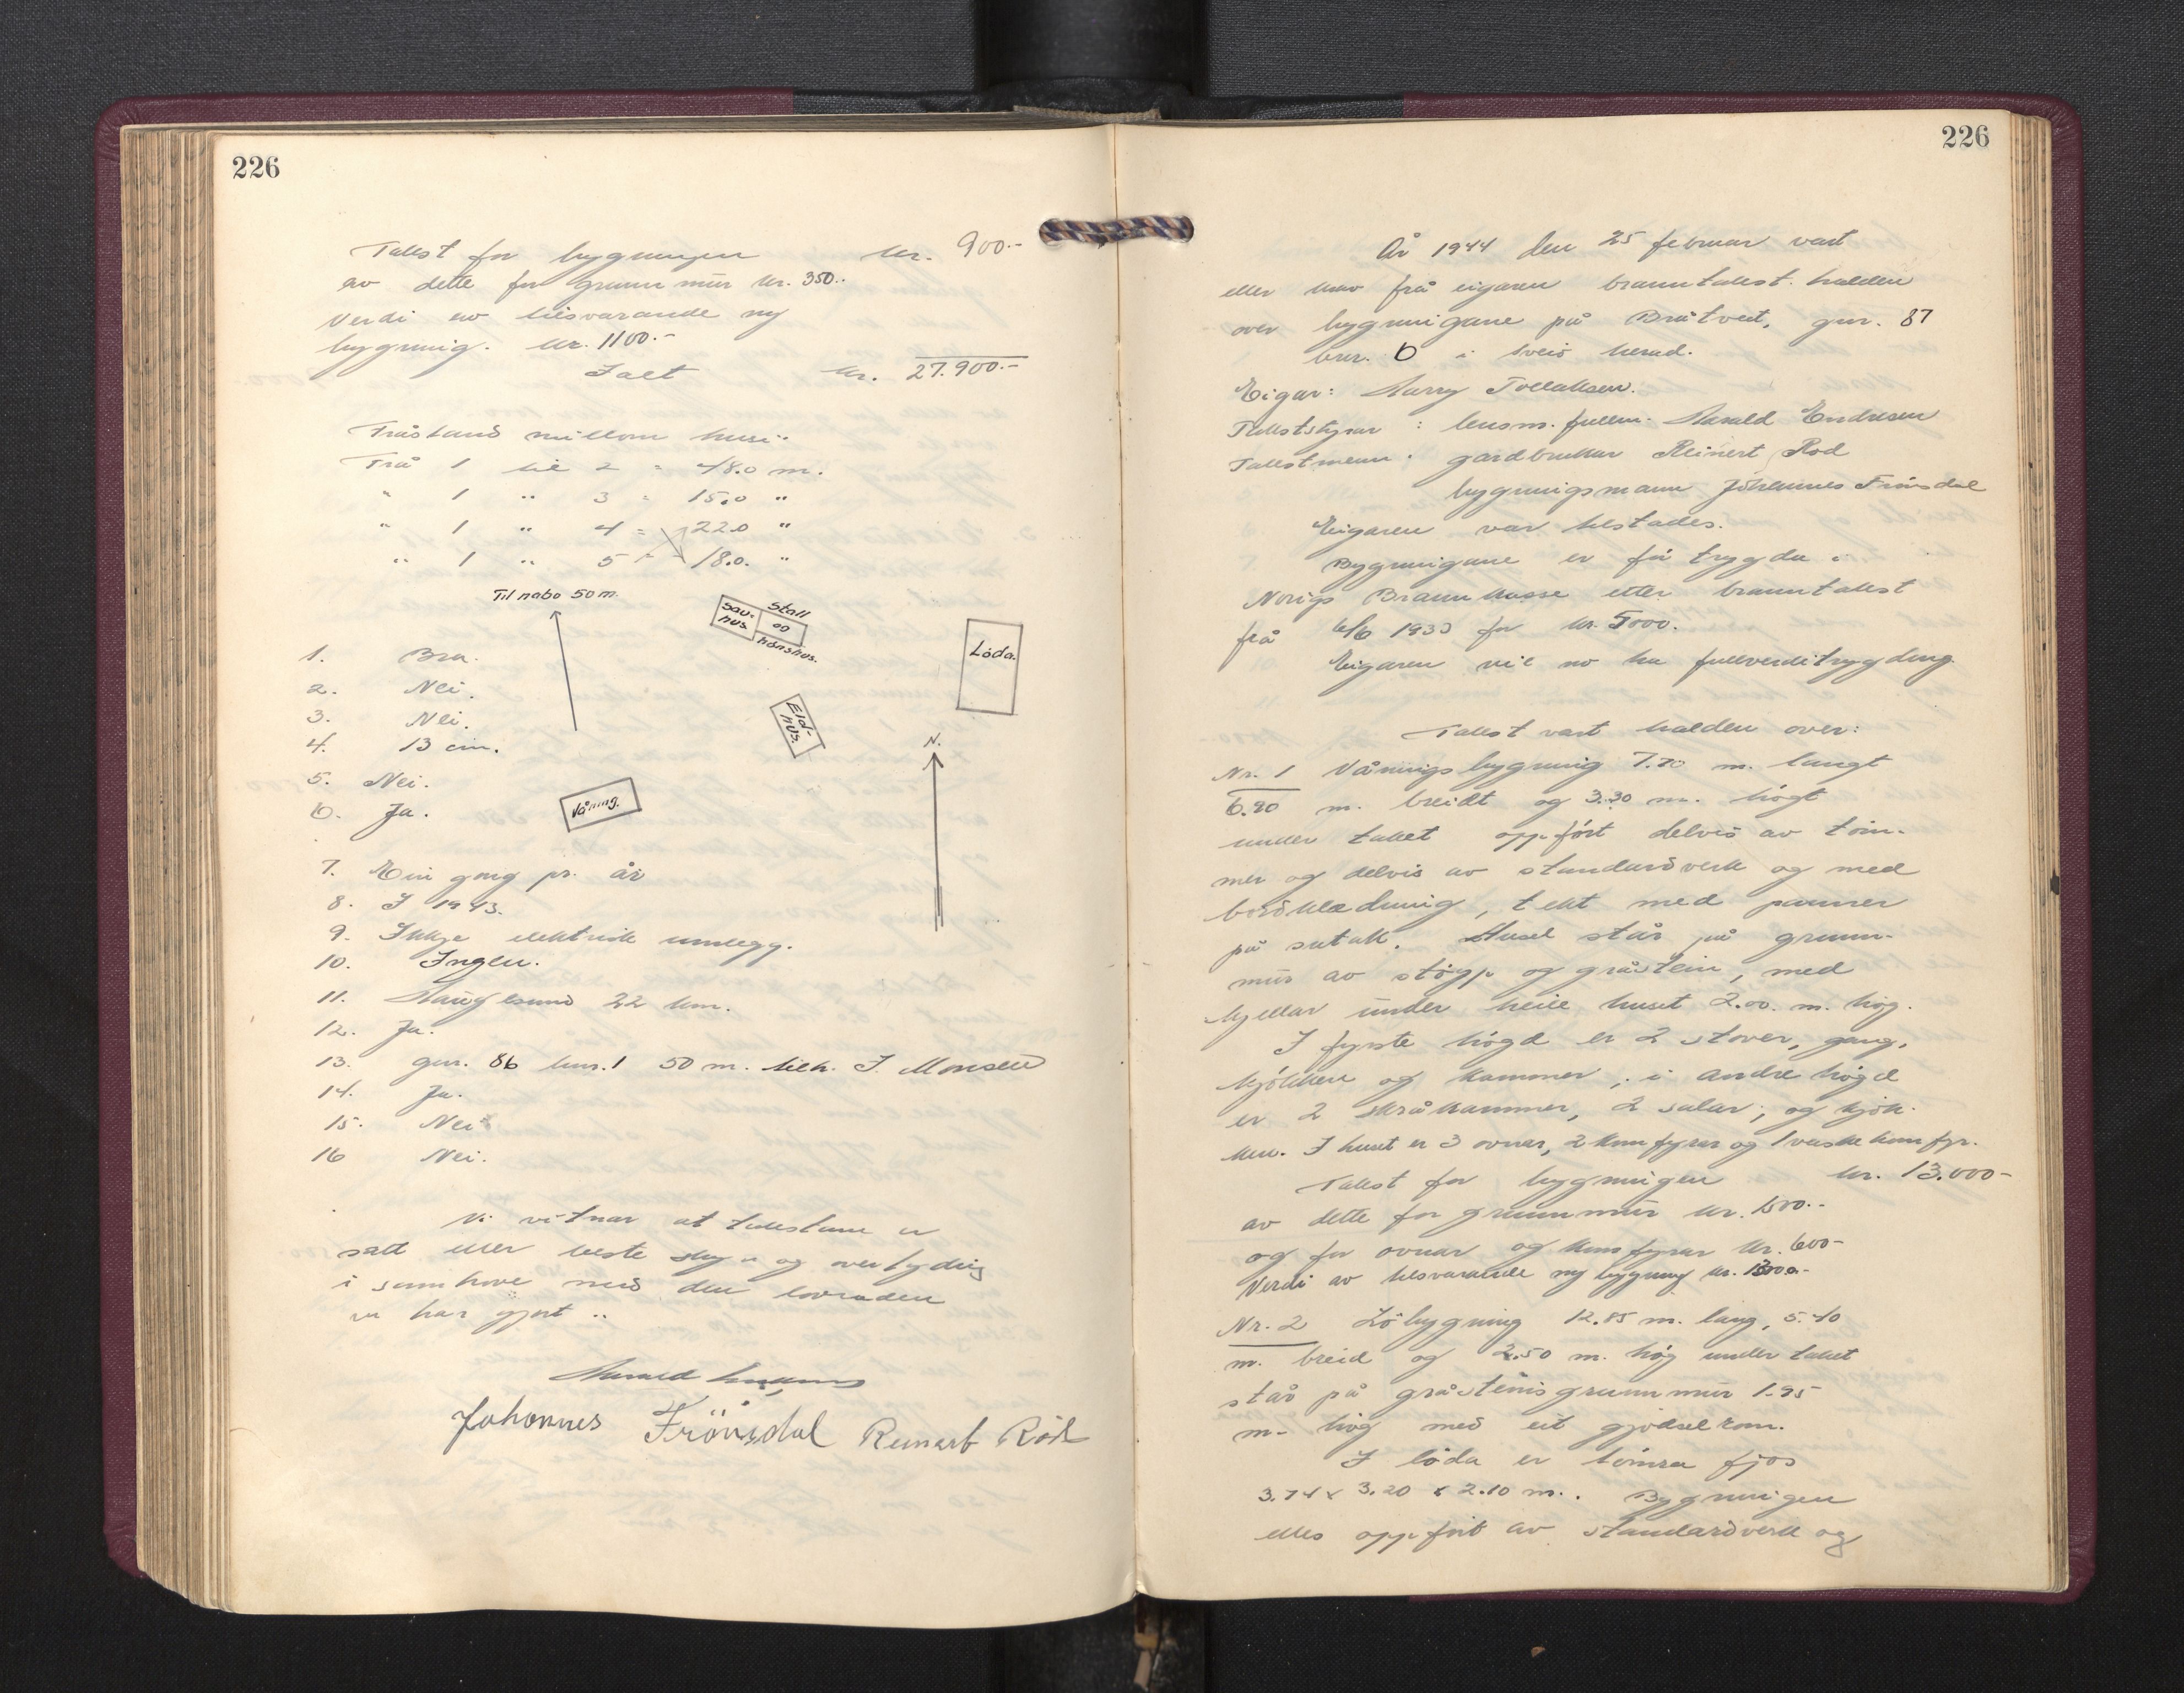 226
Takst for bygningen kr. 900.-
av dette for grunnmur kr. 350.-
Verdi av tilsvarande ny
bygning. kr. 1100.-
Ialt kr. 27.900.-
Fråstand millom husi:
Frå 1 til 2 = 48.0 m.
" 1 " 3 = 15.0 "
" 1 " 4 = 22.0 "
" 1 " 5 = 18.0. "
Til nabo 50 m.
Sau-
hus.
Stall
og
hønshus.
Løda.
Eld-
hus.
N.
Våning.
1. Bra.
2. Nei.
3. Nei.
4. 13 cm.
5. Nei.
6. Ja.
7. Ein gong pr. år
8. I 1943.
9. Ikkje elektrisk innlegg.
10. Ingen.
11. Haugesund 22 km.
12. Ja.
13. gnr. 86 bnr. 1 50 m. tilh. I. Monsen
14. Ja.
15. Nei
16 Nei.
Vi vitnar at takstane er
satt etter beste skyn og overtyding
i samhøve med den lovnaden
vi har gjort..
Harald
Johannes Frönsdal Reinart Röd
226
År 1944 den 25 februar vart
etter krav frå eigaren branntakst halden
over bygningane på Bråtveit, gnr. 87
bnr. 6 i Sveio herad.
Eigar: Harry Tollaksen.
Takststyrar: lensm. fullm. Harald Endresen
Takstmenn: gardbrukar Reinert Rød
bygningsmann Johannes Frönsdal
Eigaren var tilstades.
Bygningane er før trygda i
Norigs Brannkasse etter branntakst
frå 6/6 1933 for kr. 5000.
Eigaren vil no ha fullverditrygding.
Takst vart halden over:
Nr. 1 Våningsbygning 7.70 m. langt
6.20 m. breidt og 3.30 m. högt
under taket oppført delvis av töm-
mer og delvis av standardverk og med
bordkledning, tekt med panner
på sutak. Huset står på grunn-
mur av støyp og gråstein, med
kjellar under heile huset 2.00. m. høg.
I fyrste högd er 2 stover, gang,
kjökken og kammer; i andre högd
er 2 skråkammer, 2 salar, og kjök-
ken. I huset er 3 ovnar, 2 komfyrar og 1 vaskekomfyr.
Takst for bygningen kr. 13.000-
av dette for grunnmur kr. 1500.-
og for ovnar og komfyrar kr. 600-
Verdi av tilsvarande ny bygning kr.
Nr. 2 Löbygning 12.85 m. lang, 5.40
m. breid og 2.50 m. høg under taket
står på gråsteinsgrunnmur 1.95
m. høg med eit gjødselrom.
I løda er tömra fjos
3.74 x 3.20 x 2.10 m.. Bygningen
elles oppført av standardverk og